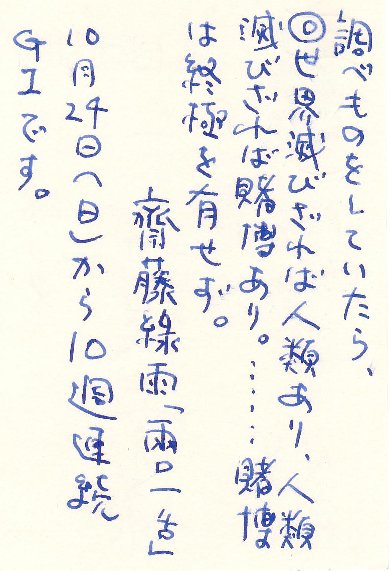 調べものをしていたら、
◎世界滅びざれば人類あり、人類
滅びざれば賭博あり。……賭博
は終極を有せず。
齋藤緑雨「雨口一舌」
10月24日(日)から10週連続
GIです。